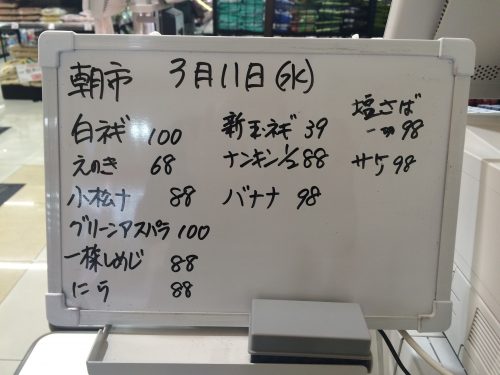 朝市 3月11日(水)
白ネギ 100
えのき 68
小松ナ 88
グリーンアスパラ 100
一株しめじ 88
にら 88
新玉ネギ 39
ナンキン1/2 88
バナナ 98
塩さば
98
サケ 98